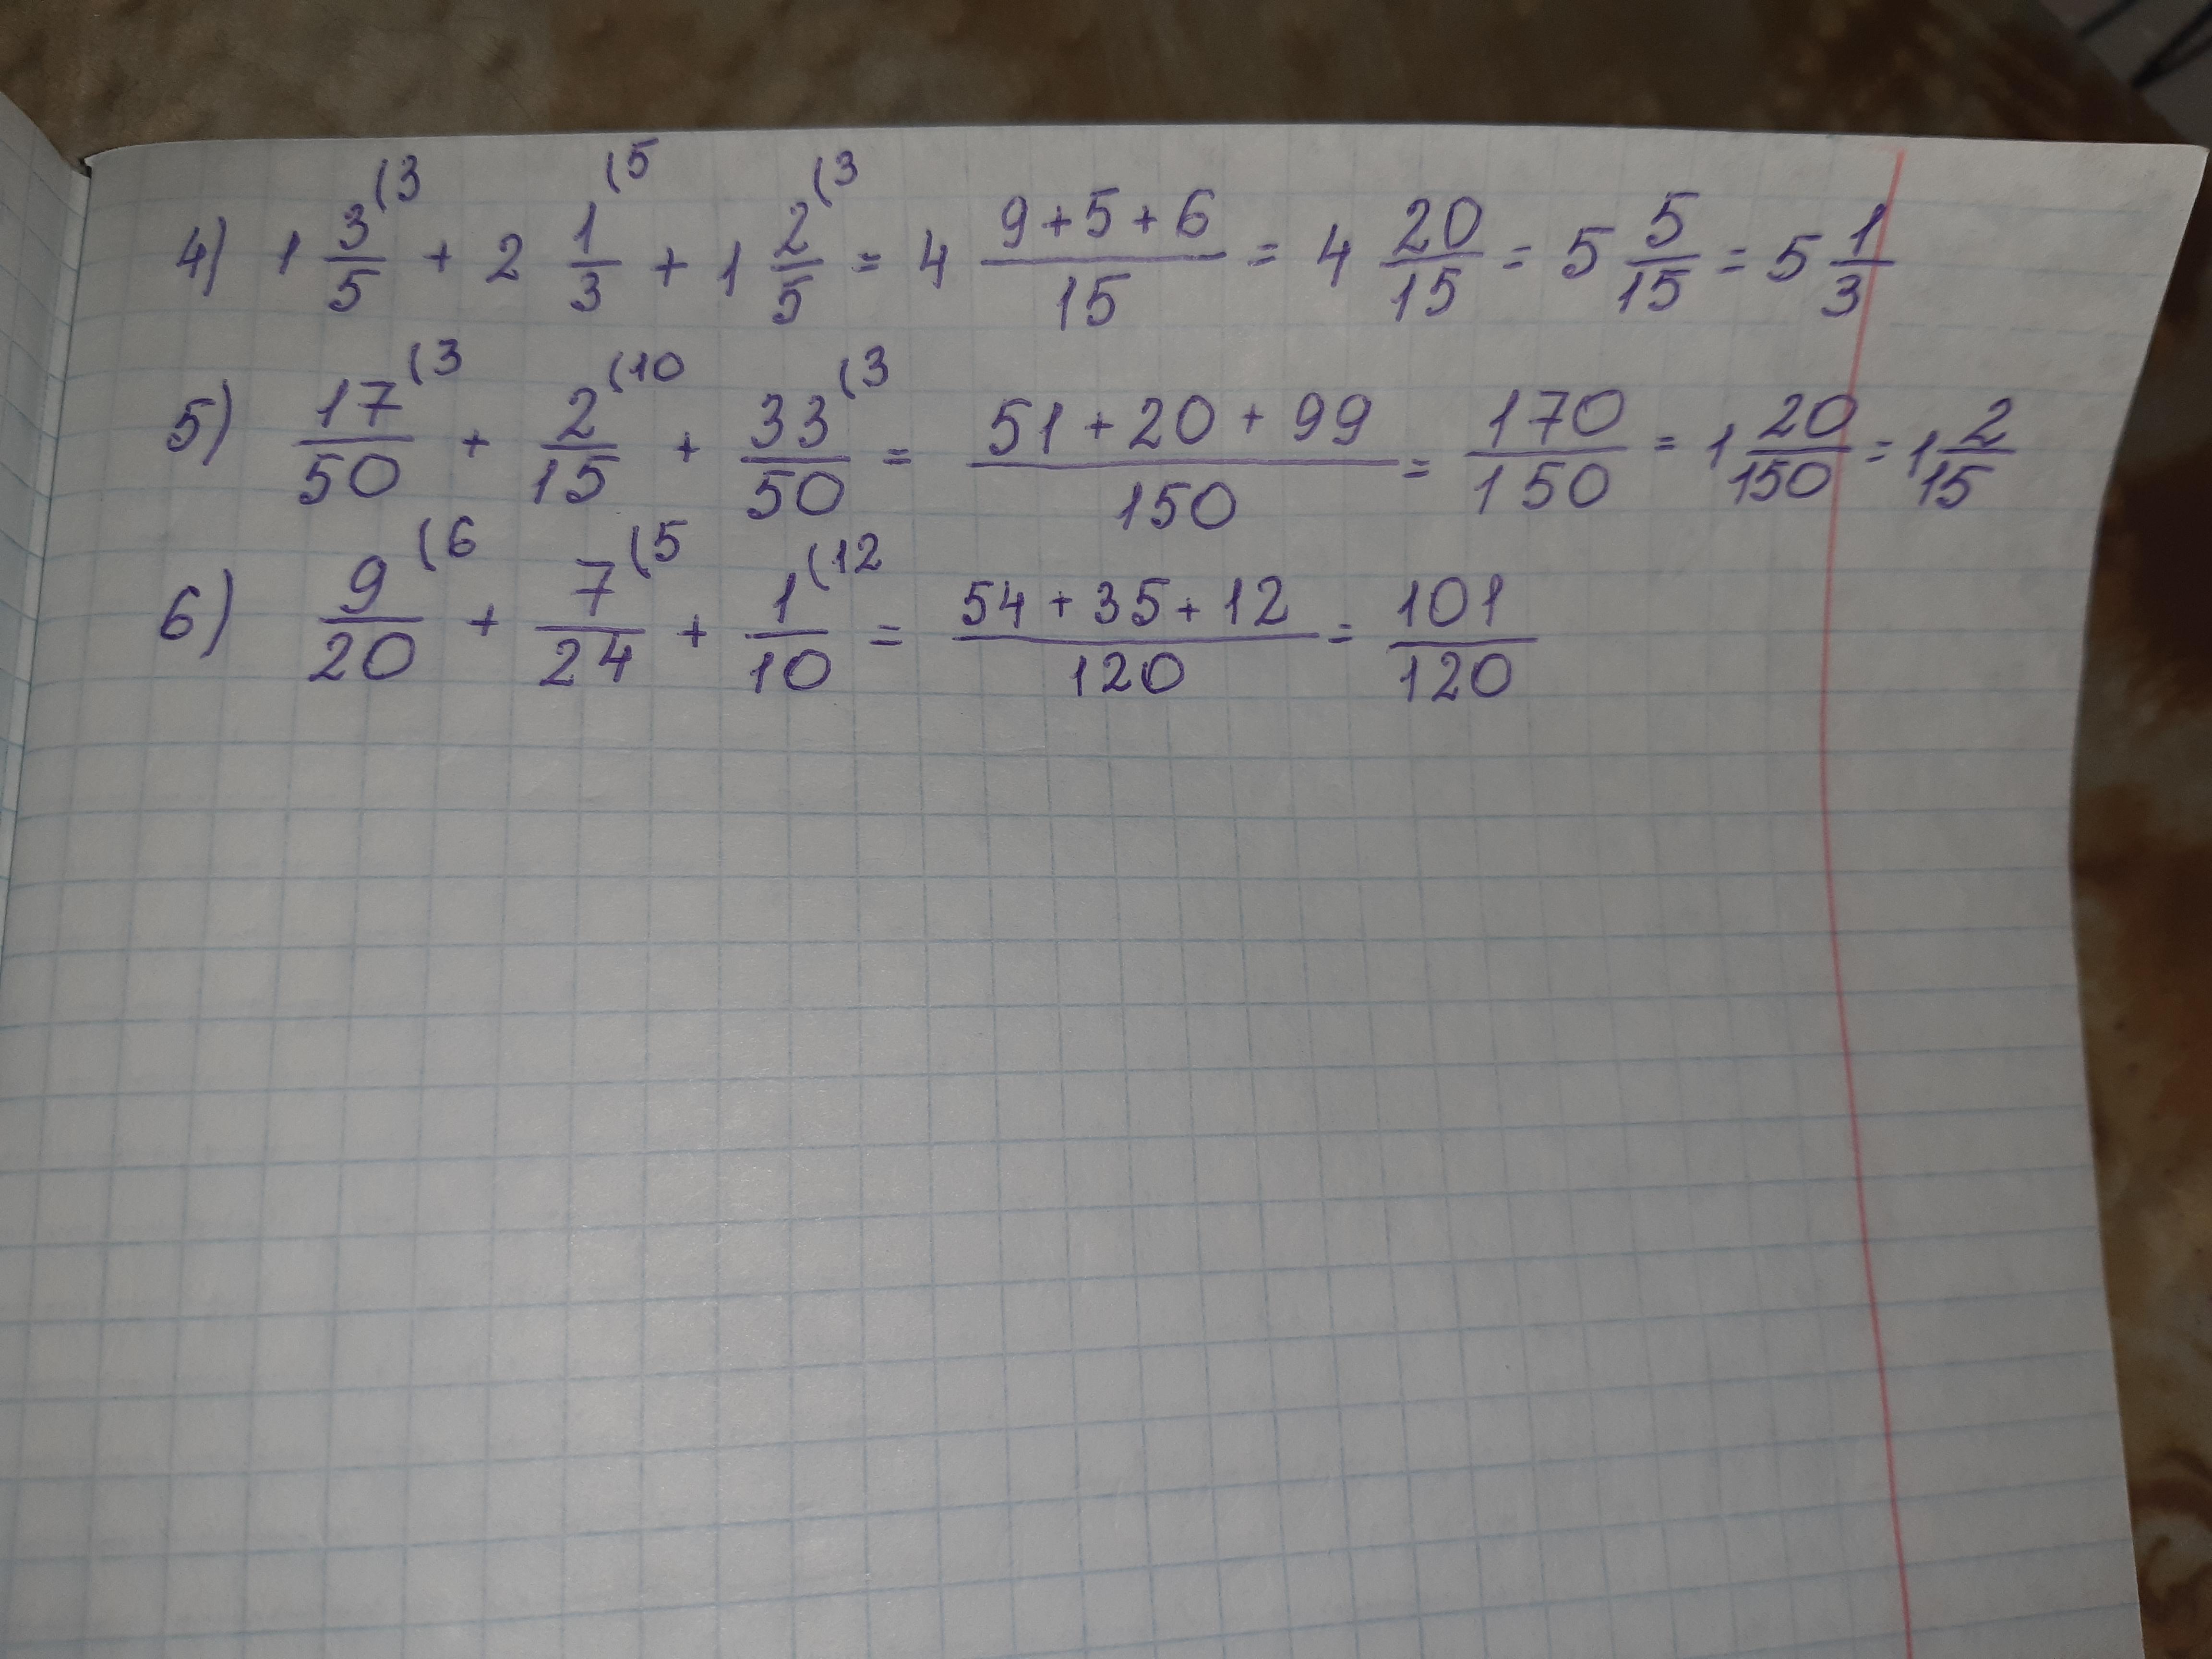 4) 1 3/5 (3 + 2 1/3 (5 + 1 2/5 (3 = 4 (9+5+6)/15 = 4 20/15 = 5 5/15 = 5 1/3
5) 17/50 (3 + 2/15 (10 + 33/50 (3 = (51+20+99)/150 = 170/150 = 1 20/150 = 1 2/15
6) 9/20 (6 + 7/24 (5 + 1/10 (12 = (54+35+12)/120 = 101/120